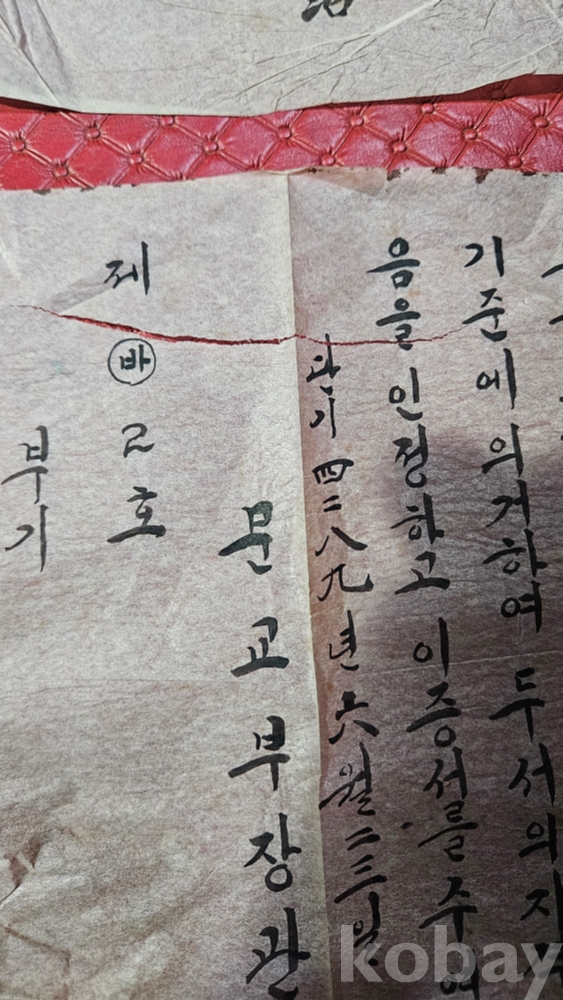 기준에 의거하여 두서의 자
음을 인정하고 이 증서를 수여
단기 四二八九년 六월 二三일
문교부장관
제 ㉳ 2호
부기
kobay